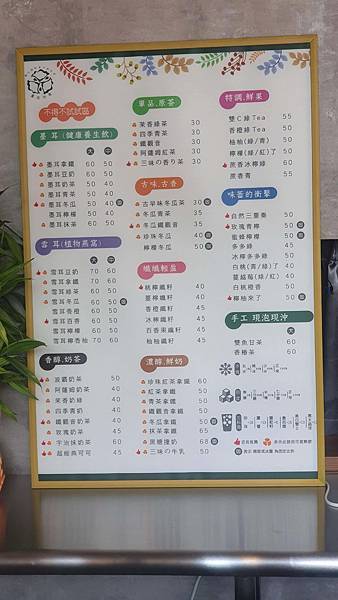 不得不試試區
墨耳(健康養生飲)
大 中
墨耳拿鐵 60 50
墨耳豆奶 60 50
墨耳奶茶 50 40
墨耳青茶 50 40
墨耳冬瓜 50 40
墨耳檸檬 50 40
墨耳抹茶 60 50
雪耳(植物燕窩)
大 中
雪耳豆奶 70 60
雪耳拿鐵 70 60
雪耳綠茶 60 50
雪耳冬瓜 60 50
雪耳香橙 60 50
雪耳百香 60 50
雪耳檸檬 60 50
雪耳檸香柚 70 60
香醇.奶茶
波霸奶茶 50
阿薩姆奶茶 40
茉香奶綠 40
四季奶青 40
鐵觀音奶茶 40
玫瑰奶茶 45
宇治抹奶茶 60
超經典可可 45
單品.原茶
茉香綠茶 30
四季青茶 30
鐵觀音 30
阿薩姆紅茶 30
三味の香り茶 30
古味.古香
古早味冬瓜茶 30
冬瓜青茶 35
冬瓜鐵觀音 35
珍珠冬瓜 40
檸檬冬瓜 50
纖纖輕盈
桃檸纖籽 40
薑檸纖籽 45
香橙纖籽 45
冰檸纖籽 45
百香果纖籽 45
柚柚纖籽 45
濃醇.鮮奶
珍珠紅茶拿鐵 60
紅茶拿鐵 50
青茶拿鐵 50
鐵觀音拿鐵 50
冬瓜拿鐵 50
抹茶拿鐵 60
黑糖撞奶 68
三味の牛乳 50
特調.鮮果
雙C綠Tea 55
香橙綠Tea 50
柚柚(綠/青) 50
檸檬(綠/紅)了 50
蔗香冰檸綠 60
蔗香青 55
味蕾的衝擊
自然三重奏 50
玫瑰青檸 50
蜜蜂檸檬 50
多多綠 45
冰檸多多綠 50
白桃(青/綠)了 40
薑絨殿(綠/紅) 50
白桃橙香 50
柳橙來了 50
手工.現泡現沖
大
雙魚甘茶 60
香椿茶 60